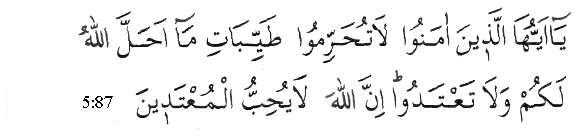 يَٓا اَيُّهَا الَّذ۪ينَ اٰمَنُوا لَاتُحَرِّمُوا طَيِّبَاتِ مَٓا اَحَلَّ اللّٰهُ
لَكُمْ وَلَا تَعْتَدُواۜ اِنَّ اللّٰهَ لَايُحِبُّ الْمُعْتَد۪ينَ 5:87